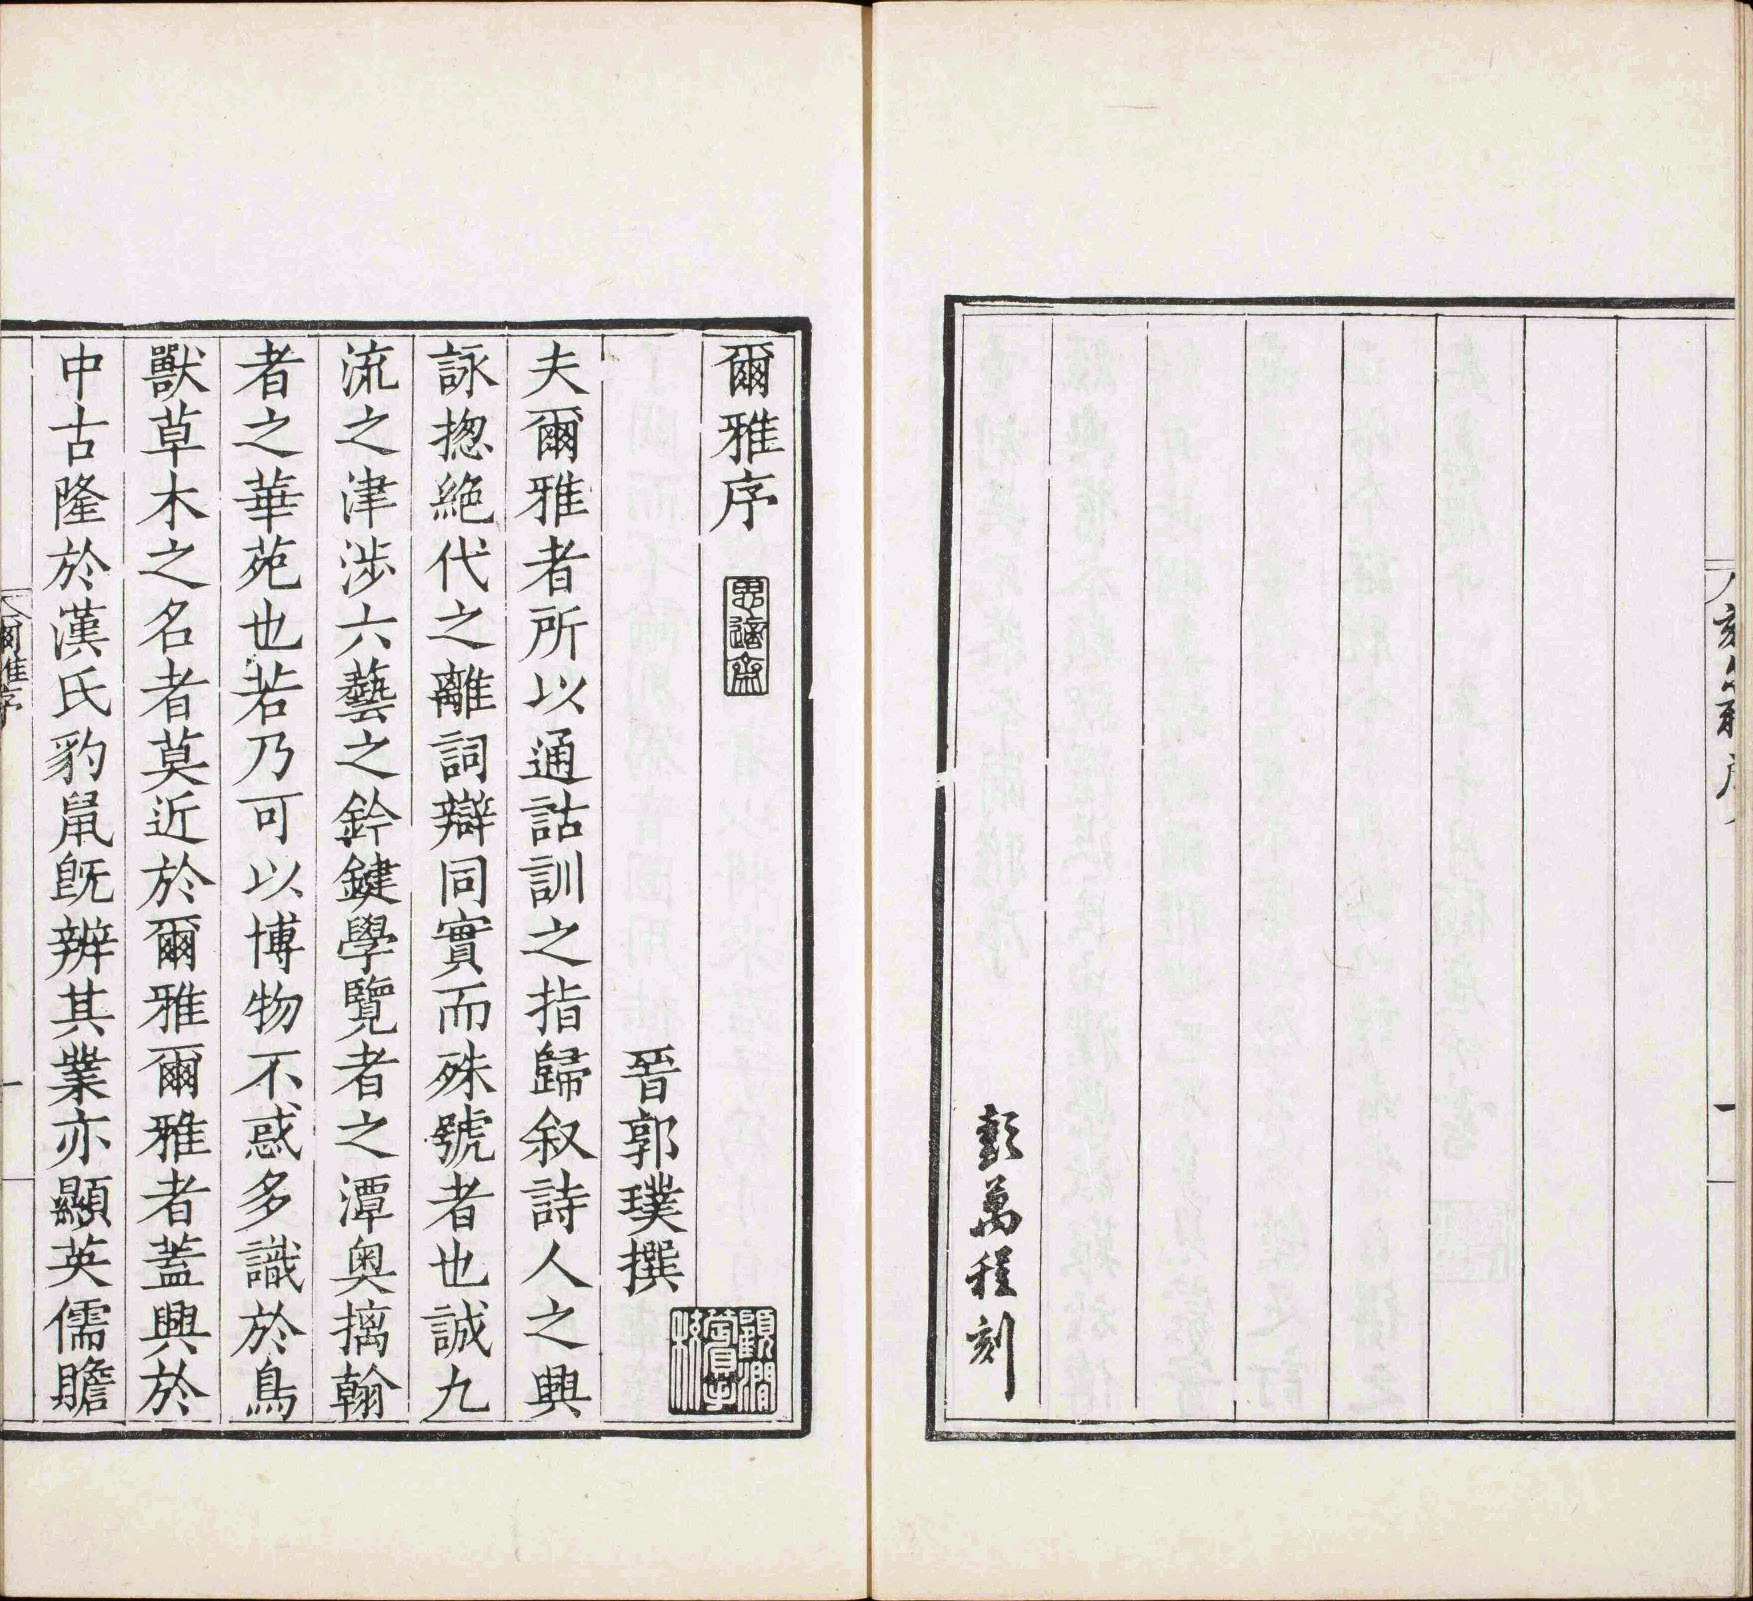 彭萬程刻
爾雅序
思適齋
晉郭璞撰
顧澗薲手校
夫爾雅者所以通詁訓之指歸叙詩人之興
詠揔絶代之離詞辯同實而殊號者也誠九
流之津涉六藝之鈐鍵學覽者之潭奥摛翰
者之華苑也若乃可以博物不惑多識於鳥
獸草木之名者莫近於爾雅爾雅者蓋興於
中古隆於漢氏豹鼠旣辨其業亦顯英儒贍
爾雅序
一